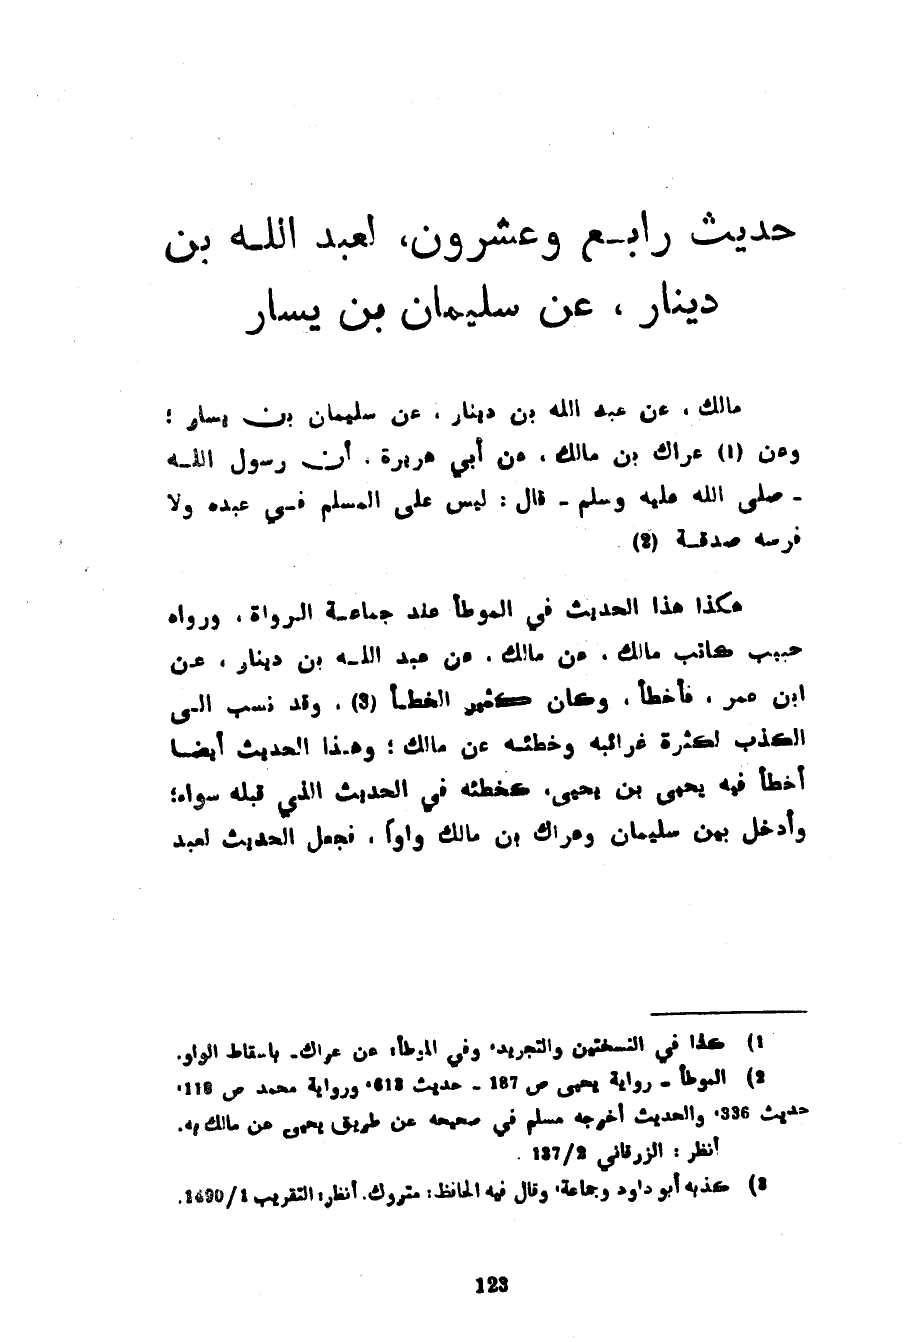 حديث رابع وعشرون، لعبد الله بن
دينار ، عن سليمان بن يسار
مالك ، عن عبد الله بن دينار ، عن سليمان بن يسار ؛
وعن (1) عراك بن مالك ، عن أبي هريرة ، أن رسول الله
- صلى الله عليه وسلم - قال : ليس على المسلم في عبده ولا
فرسه صدقة (2) .
هكذا هذا الحديث في الموطأ عند جماعة الرواة ، ورواه
حبيب كاتب مالك ، عن مالك ، عن عبد الله بن دينار ، عن
ابن عمر ، فأخطأ ، وكان كثير الخطأ (3) ، وقد نسب الى
الكذب لكثرة غرائبه وخطئه عن مالك ؛ وهذا الحديث أيضا
أخطأ فيه يحيى بن يحيى، كخطئه في الحديث الذي قبله سواء؛
وأدخل بين سليمان وعراك بن مالك واوا ، فجعل الحديث لعبد
1) كذا في النسختين والتجريد، وفي الموطأ: عن عراك- باسقاط الواو.
2) الموطأ - رواية يحيى ص 187 - حديث 613، ورواية محمد ص 118،
حديث 336، والحديث أخرجه مسلم في صحيحه عن طريق يحيى عن مالك به.
أنظر : الزرقاني 137/2 .
3) كذبه أبو داود وجماعة، وقال فيه الحافظ: متروك. أنظر: التقريب 1/
123